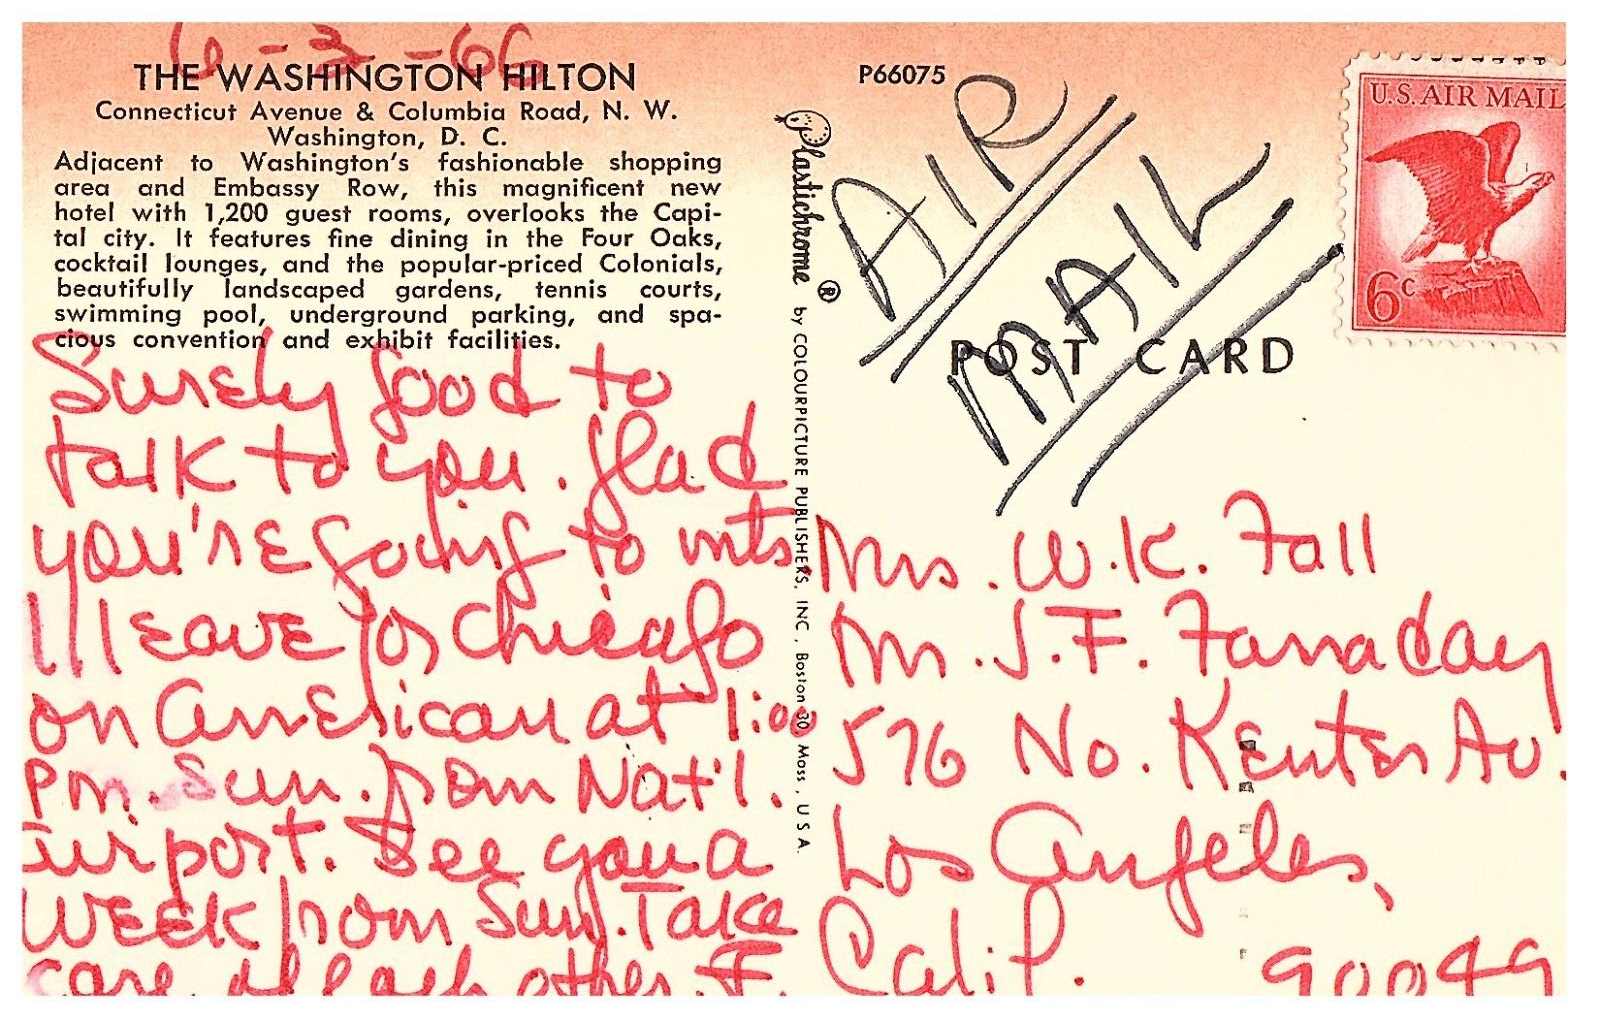 6-3-66
THE WASHINGTON HILTON
Connecticut Avenue & Columbia Road, N. W.
Washington, D. C.
Adjacent to Washington's fashionable shopping
area and Embassy Row, this magnificent new
hotel with 1,200 guest rooms, overlooks the Capi-
tal city. It features fine dining in the Four Oaks,
cocktail lounges, and the popular-priced Colonials,
beautifully landscaped gardens, tennis courts,
swimming pool, underground parking, and spa-
cious convention and exhibit facilities.
Surely good to
talk to you. Glad
you're going to mts.
I'll leave for Chicago
on American at 1:00
pm. Sun. from Nat'l.
airport. See you a
week from Sun. Take
care of each other. F.
Plastichrome ® by COLOURPICTURE PUBLISHERS, INC., Boston 30, Mass., U.S.A.
P66075
AIR
MAIL
POST CARD
U.S. AIR MAIL
6c
Mrs. W.K. Fall
Mr. J.F. Farraday
576 No. Kenter Av.
Los Angeles,
Calif. 90049